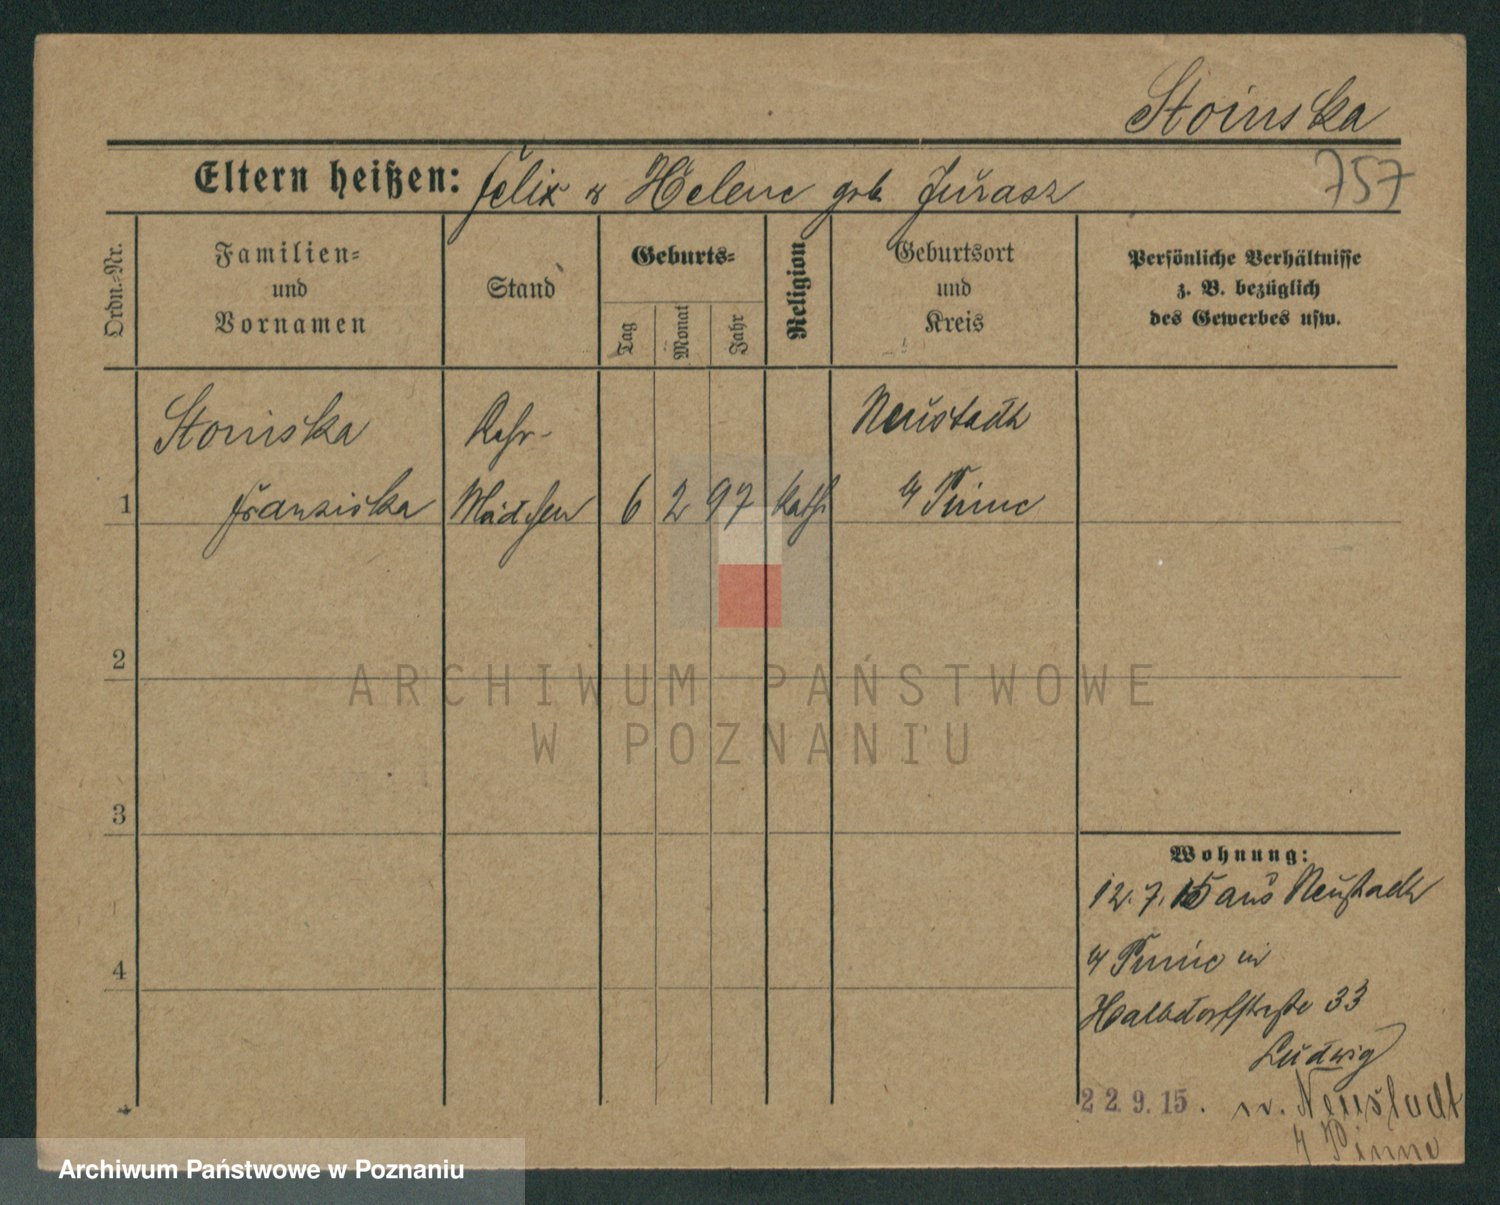 Stoinska
Eltern heißen: Felix u Helene geb Jurasz
757
Ordn.-Nr.
Familien-
und
Vornamen
Stand
Geburts-
Tag
Monat
Jahr
Religion
Geburtsort
und
Kreis
Persönliche Verhältnisse
z. B. bezüglich
des Gewerbes usw.
Stoinska
Neustadt
1 Franziska Mädchen 6 2 97 kath Pinne
2
ARCHIWUM PAŃSTWOWE
W POZNANIU
3
4
Wohnung:
12. 7. 15 aus Neustadt
Pinne in
Halbdorfstraße 33
Ludwig
22. 9. 15. n. Neustadt
Pinne
Archiwum Państwowe w Poznaniu